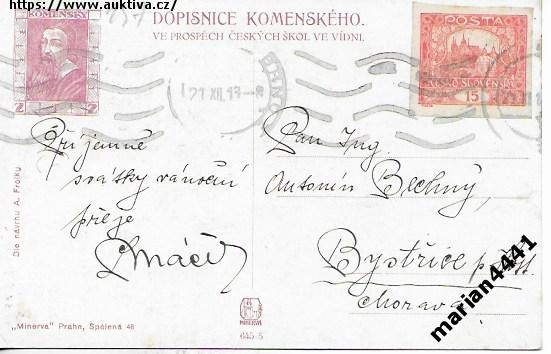 https://www.auktiva.cz/
DOPISNICE KOMENSKÉHO.
VE PROSPĚCH ČESKÝCH ŠKOL VE VÍDNI.
KOMENSKÝ
2 2
POŠTA
ČESKO-SLOVENSKÁ
15
BRNO
21 XII. 19 - 8
Příjemné
svátky vánoční
přeje
Pan Ing.
Antonín Blechný
Bystřice
Morava
Dle návrhu A. Frolky
"Minerva" Prahn, Spálená 46
MINERVA
645-5
marian4441